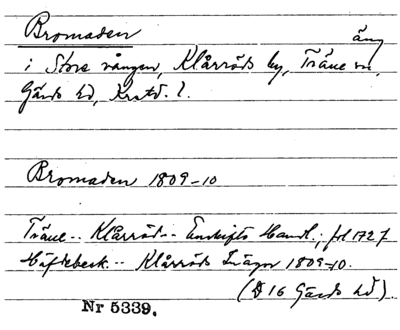 Bromaden äng
i Store vången, Klårröds by, Träne sn,
Gärds hd, Krstd. l.
Bromaden 1809-10
Träne -- Klårröd -- Enskifts Handl.; fol 172 f
Häftebeck. -- Klårröds Inägor 1809-10.
(D 16 Gärds hd).
Nr 5339.